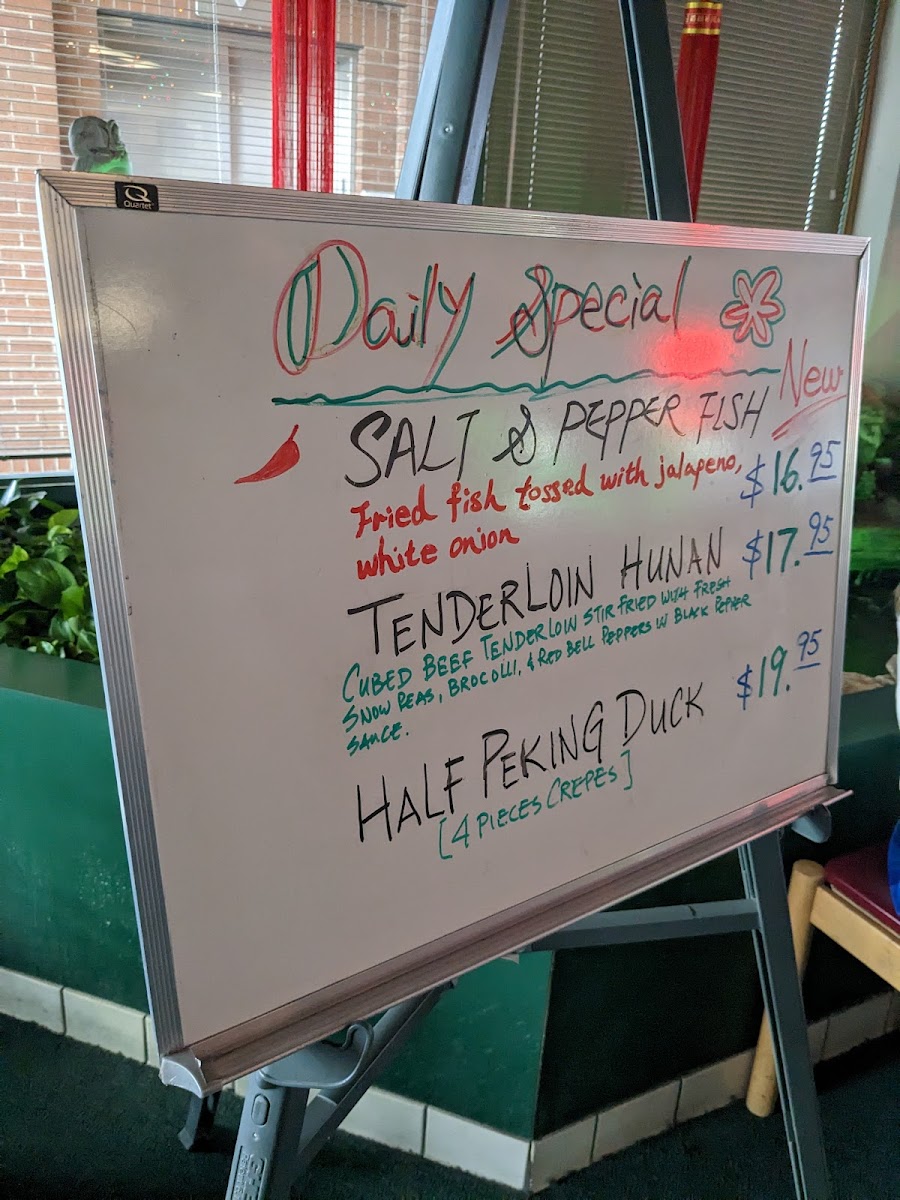 Quartet
Daily Special
New
SALT & PEPPER FISH
Fried fish tossed with jalapeno, $16.95
white onion
TENDERLOIN HUNAN $17.95
CUBED BEEF TENDERLOIN STIR FRIED WITH FRESH
SNOW PEAS, BROCOLLI, & RED BELL PEPPERS W BLACK PEPPER
SAUCE.
HALF PEKING DUCK $19.95
[4 PIECES CREPES]